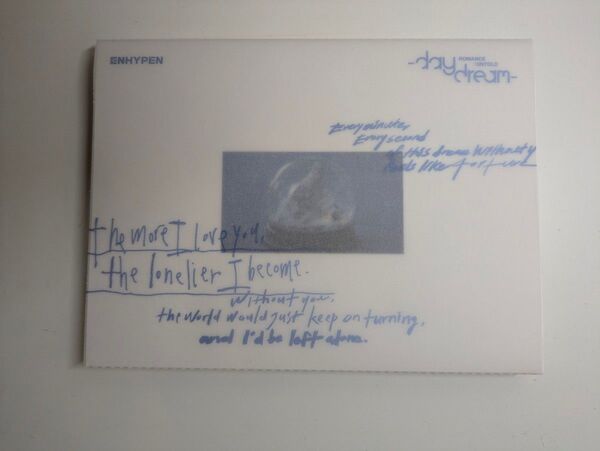 ENHYPEN
ROMANCE
UNTOLD
-daydream-
Every minute,
Every second
of this dream without y
feels like torture
the more I love you,
the lonelier I become.
without you,
the world would just keep on turning,
and I'd be left alone.